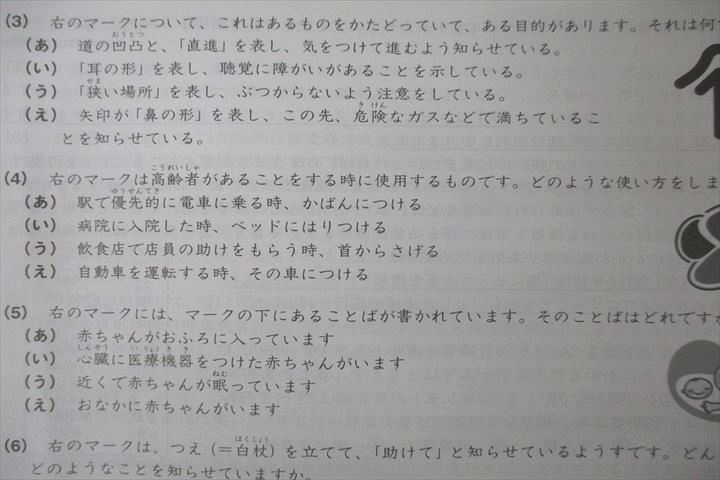 (3) 右のマークについて、これはあるものをかたどっていて、ある目的があります。それは何
(あ) 道の凹凸と、「直進」を表し、気をつけて進むよう知らせている。
(い) 「耳の形」を表し、聴覚に障がいがあることを示している。
(う) 「狭い場所」を表し、ぶつからないよう注意をしている。
(え) 矢印が「鼻の形」を表し、この先、危険なガスなどで満ちているこ
とを知らせている。
(4) 右のマークは高齢者があることをする時に使用するものです。どのような使い方をしま
(あ) 駅で優先的に電車に乗る時、かばんにつける
(い) 病院に入院した時、ベッドにはりつける
(う) 飲食店で店員の助けをもらう時、首からさげる
(え) 自動車を運転する時、その車につける
(5) 右のマークには、マークの下にあることばが書かれています。そのことばはどれですか
(あ) 赤ちゃんがおふろに入っています
(い) 心臓に医療機器をつけた赤ちゃんがいます
(う) 近くで赤ちゃんが眠っています
(え) おなかに赤ちゃんがいます
(6) 右のマークは、つえ(=白杖)を立てて、「助けて」と知らせているようすです。どん
どのようなことを知らせていますか。